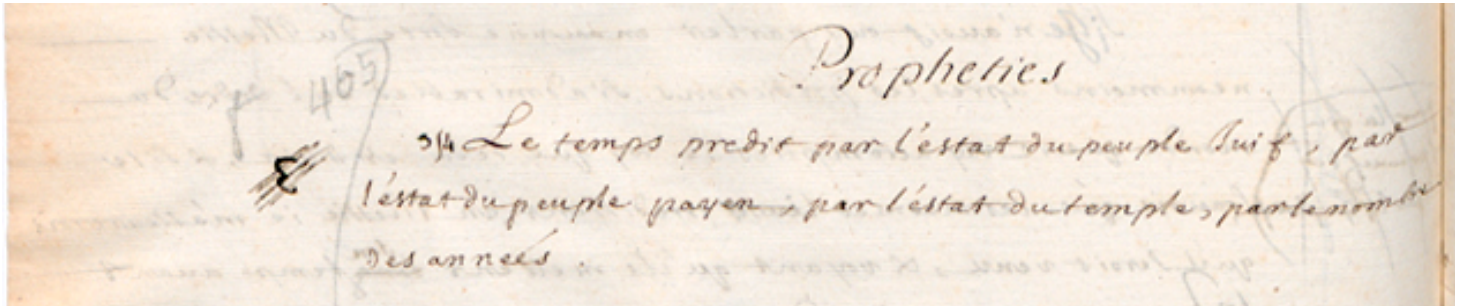 Propheties
405
314 Le temps predit par l'éstat du peuple Juif, par
l'éstat du peuple payen, par l'éstat du temple, par le nombre
des années.